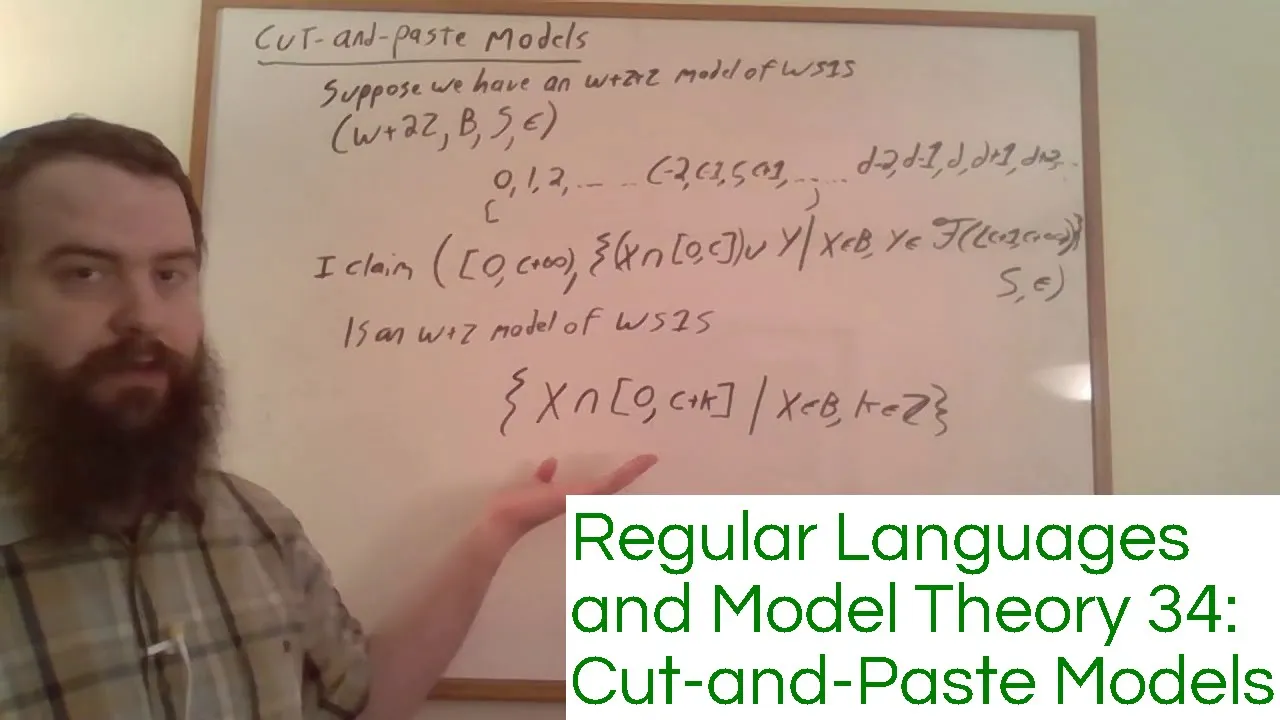 Cut-and-paste Models
Suppose we have an ω+Z+Z model of WS1S
(ω+2Z, B, S, ∈)
0, 1, 2, ... ... c-2, c-1, c, c+1, ...... d-2, d-1, d, d+1, d+2, ..
[ )
I claim ([0, c+∞), {(X∩[0,c])∪Y | X∈B, Y∈ℱ([c+1,c+∞))}
S, ∈)
Is an ω+Z model of WS1S
{X∩[0, c+k] | X∈B, k∈Z}
Regular Languages
and Model Theory 34:
Cut-and-Paste Models